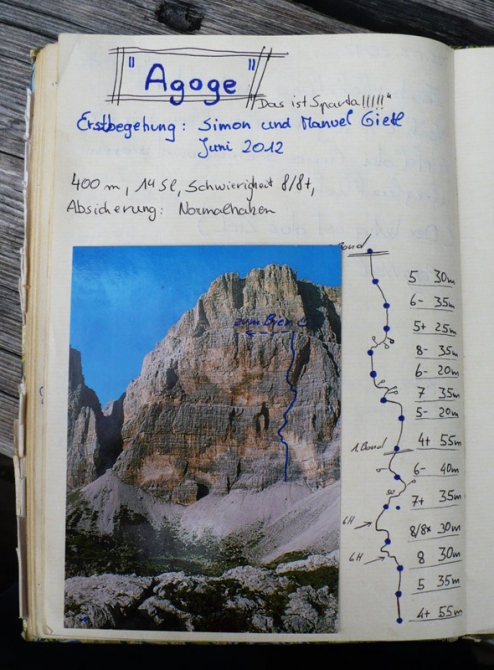 "Agoge"
„Das ist Sparta!!!!!"
Erstbegehung: Simon und Manuel Gietl
Juni 2012
400 m, 14 Sl, Schwierigkeit 8/8+,
Absicherung: Normalhaken
Band
zum Bier
5 30m
6- 35m
5+ 25m
8- 35m
6- 20m
7 35m
5- 20m
1. Band
4+ 55m
6- 40m
SU
7+ 35m
6H
8/8+ 30m
6H
8 30m
5 35m
4+ 55m